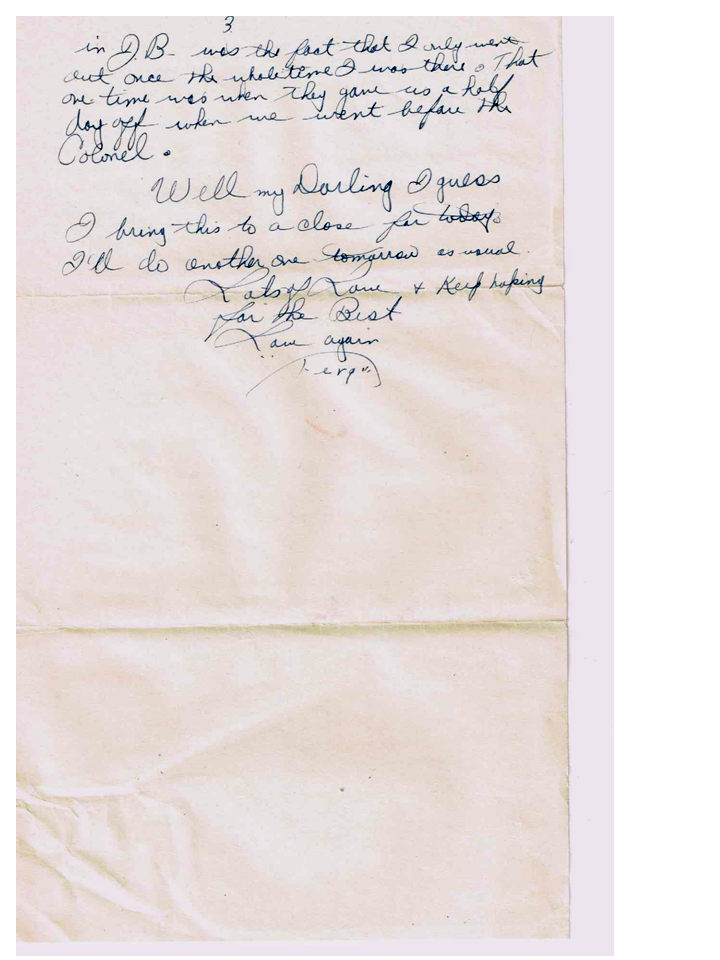 3
in D.B. was the fact that I only went
out once the whole time I was there. That
one time was when they gave us a half
day off when we went before the
Colonel.
Well my Darling I guess
I bring this to a close for today.
I'll do another one tomorrow as usual.
Lots of Love + Keep hoping
for the Best
Love again